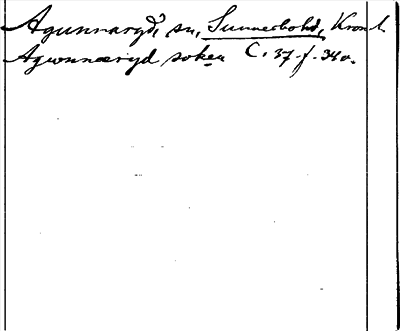 Agunnaryd, sn, Sunnerbohd, Kron. l.
Agwnnæryd soken C. 37. f. 34 a.